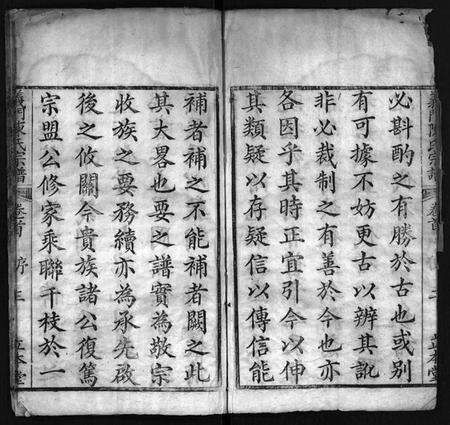 必斟酌之有勝於古也或别
有可據不妨更古以辨其訛
非必裁制之有善於今也亦
各因乎其時正宜引今以伸
其類疑以存疑信以傳信能
補者補之不能補者闕之此
其大畧也要之譜實為敬宗
收族之要務續亦為承先啟
後之攸關今貴族諸公復篤
宗盟公修家乘聯千枝於一
義門陳氏宗譜
卷首
序
三
立本堂